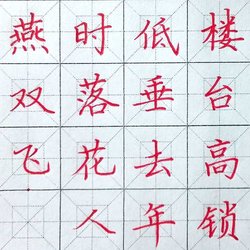 楼台高锁
低垂去年
时落花人
燕双飞